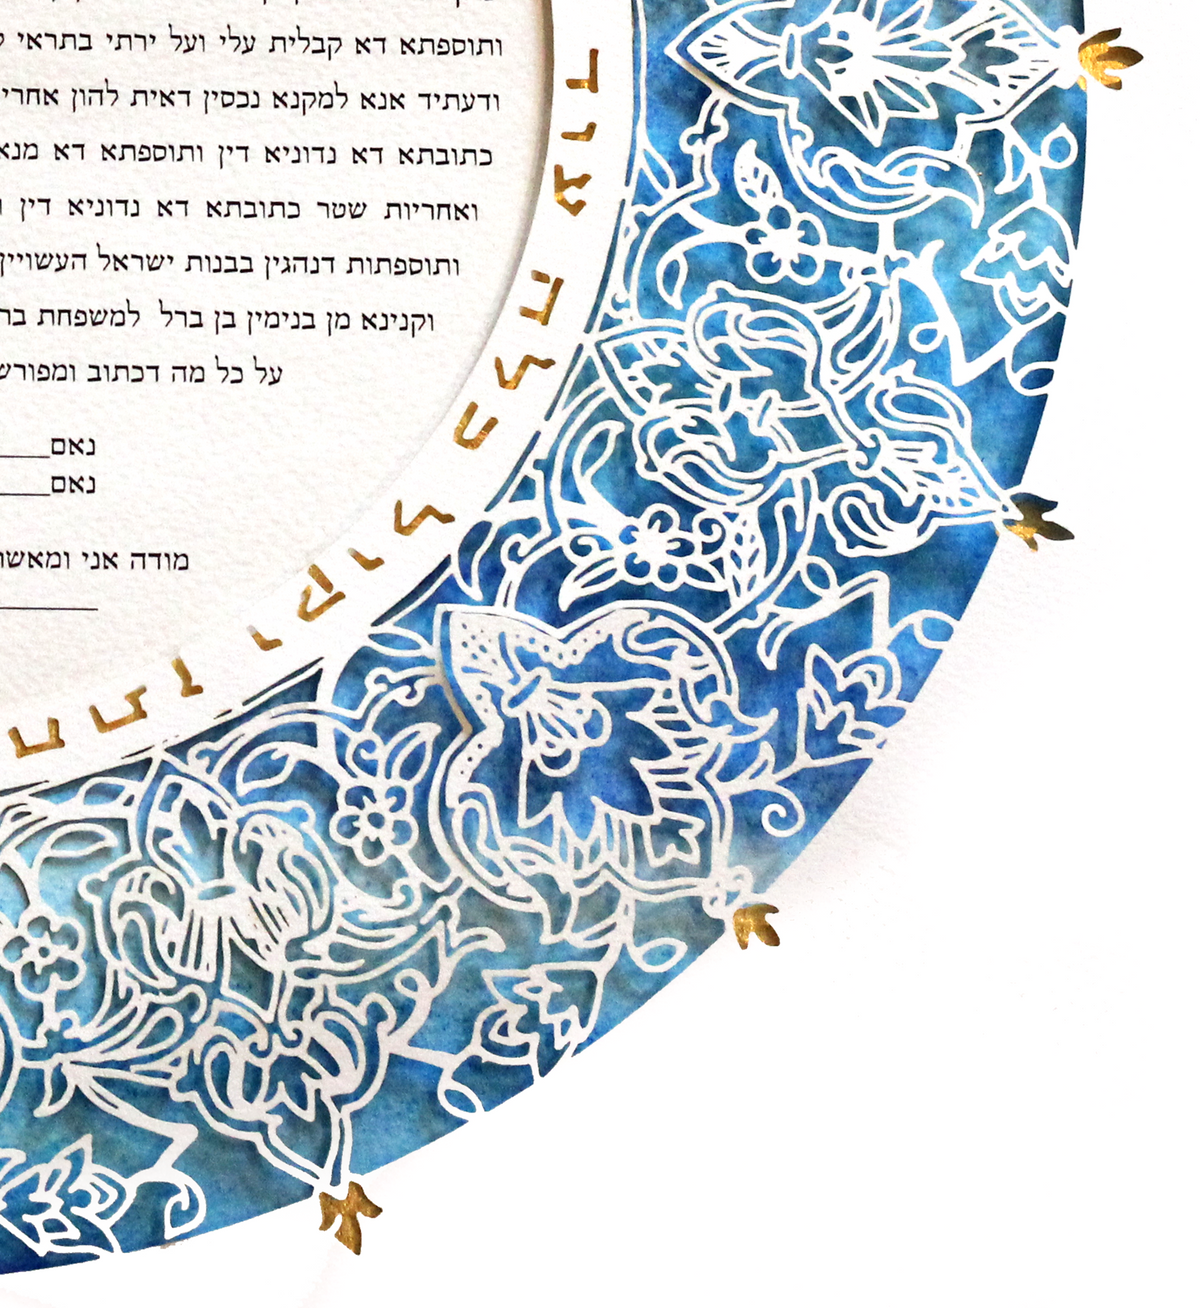 ותוספתא דא קבלית עלי ועל ירתי בתראי
ודעתיד אנא למקנא נכסין דאית להון אחרי
כתובתא דא נדוניא דין ותוספתא דא מנא
ואחריות שטר כתובתא דא נדוניא דין ו
ותוספתות דנהגין בבנות ישראל העשויין
וקנינא מן בנימין בן ברל למשפחת בר
על כל מה דכתוב ומפורש
נאם
נאם
מודה אני ומאשר
חתן וקול כלה עוד